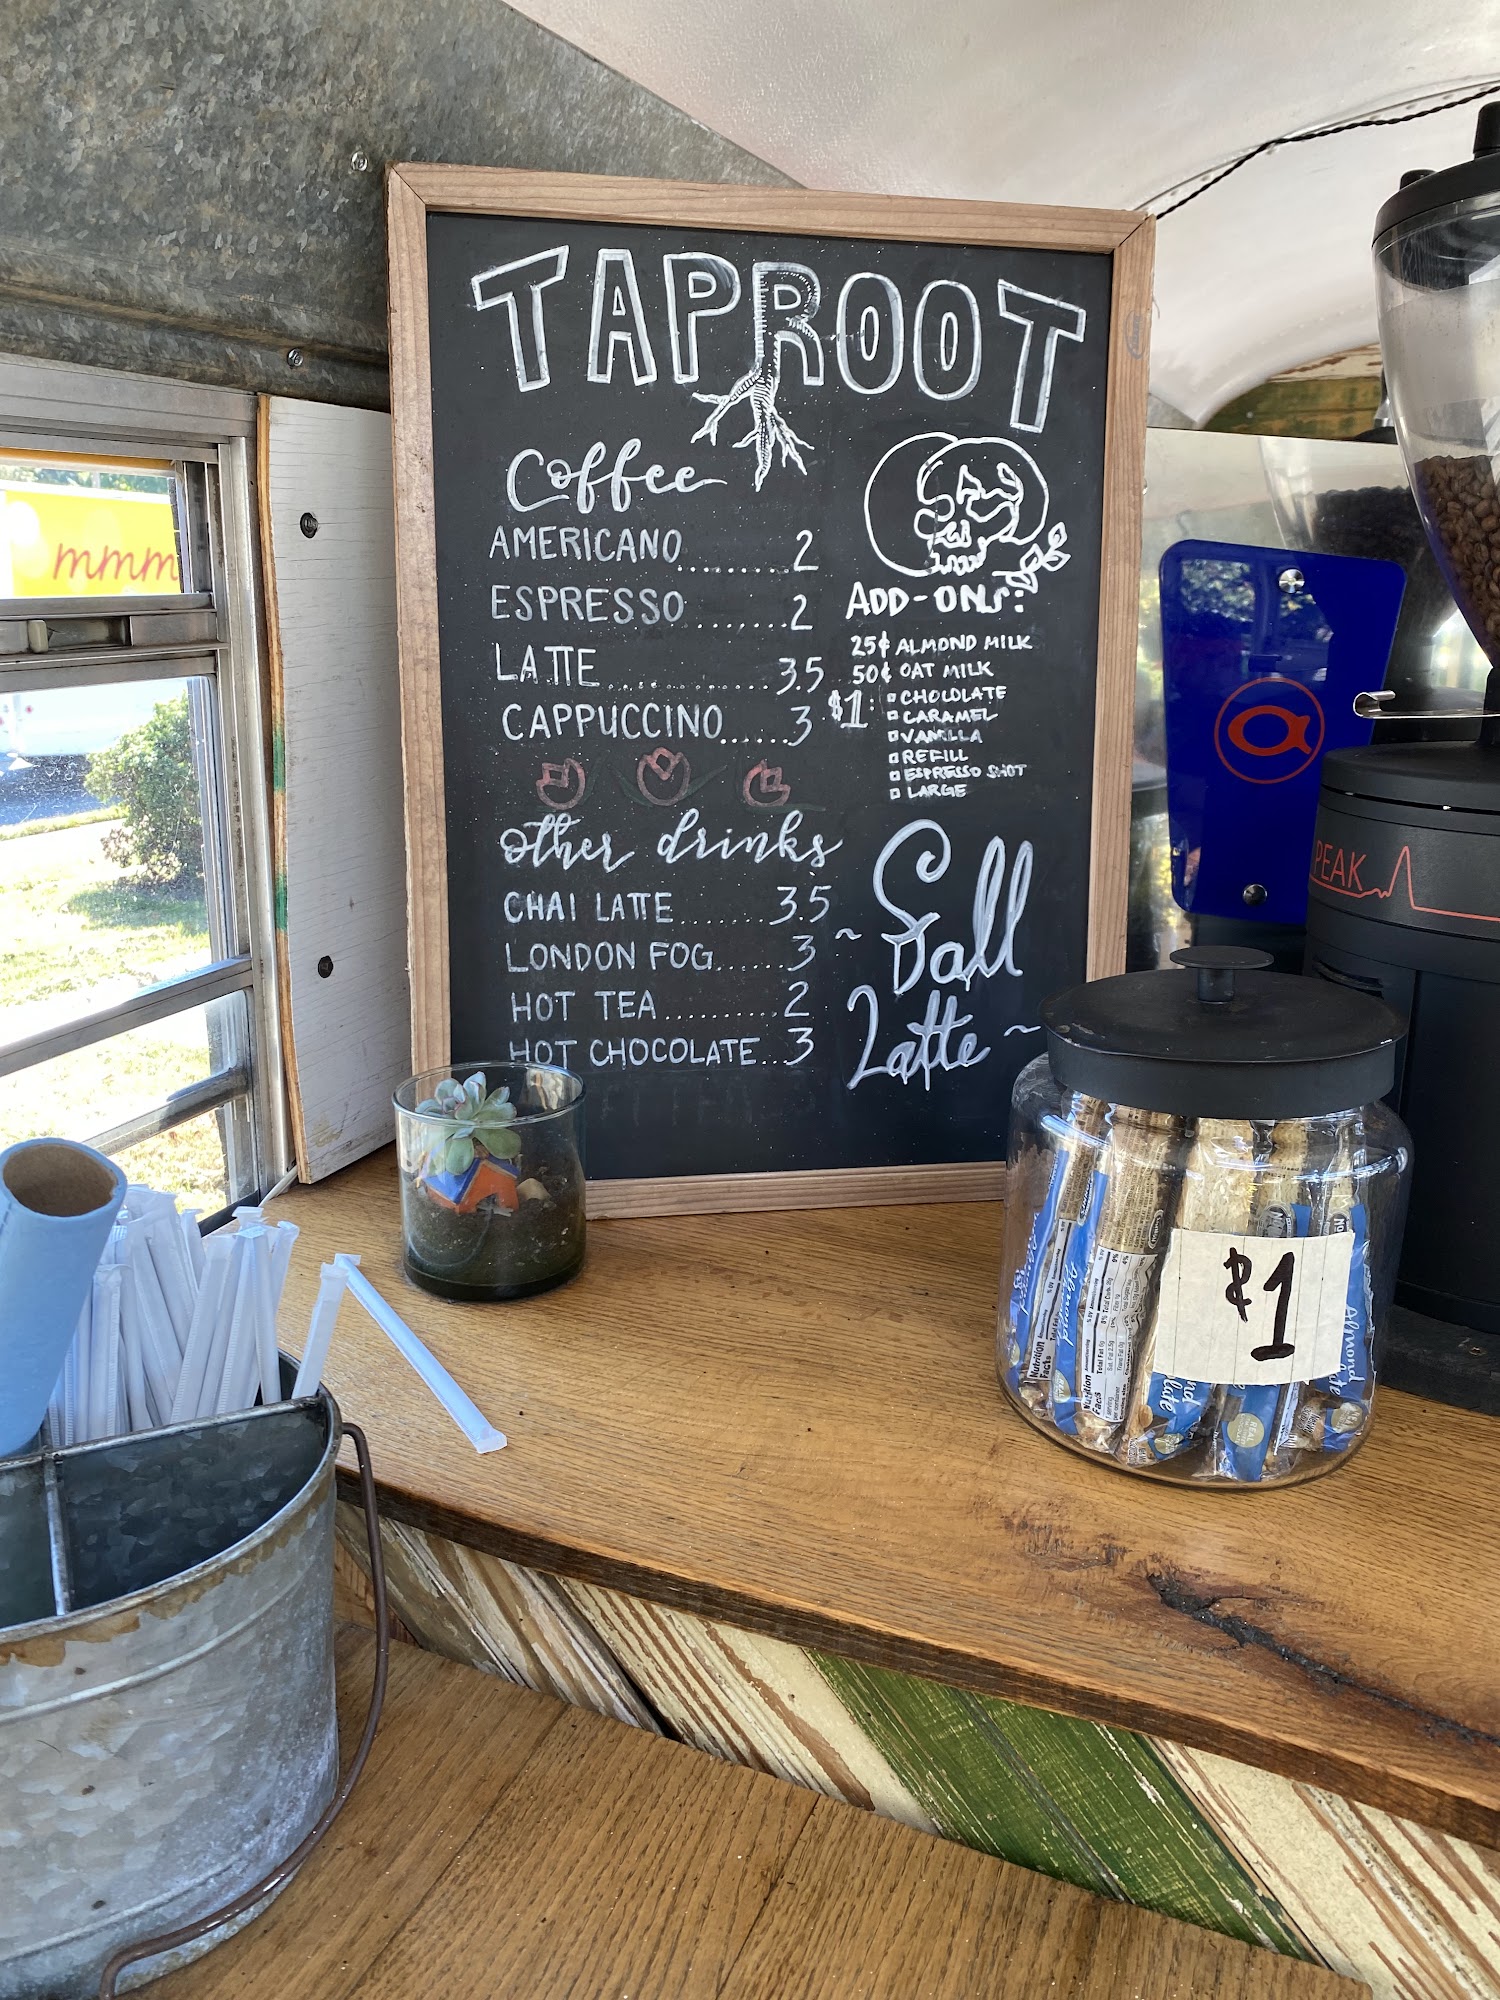 TAPROOT
Coffee
AMERICANO.........2
ESPRESSO........2
LATTE..............3.5
CAPPUCCINO......3
other drinks
CHAI LATTE.......3.5
LONDON FOG......3
HOT TEA..........2
HOT CHOCOLATE..3
ADD-ONS:
25¢ ALMOND MILK
50¢ OAT MILK
$1: CHOLOLATE
CARAMEL
VANILLA
REFILL
ESPRESSO SHOT
LARGE
~ Fall
Latte ~
mmm
PEAK
$1
Nutrition
Facts
Nutrition
Facts
Almond
Almond